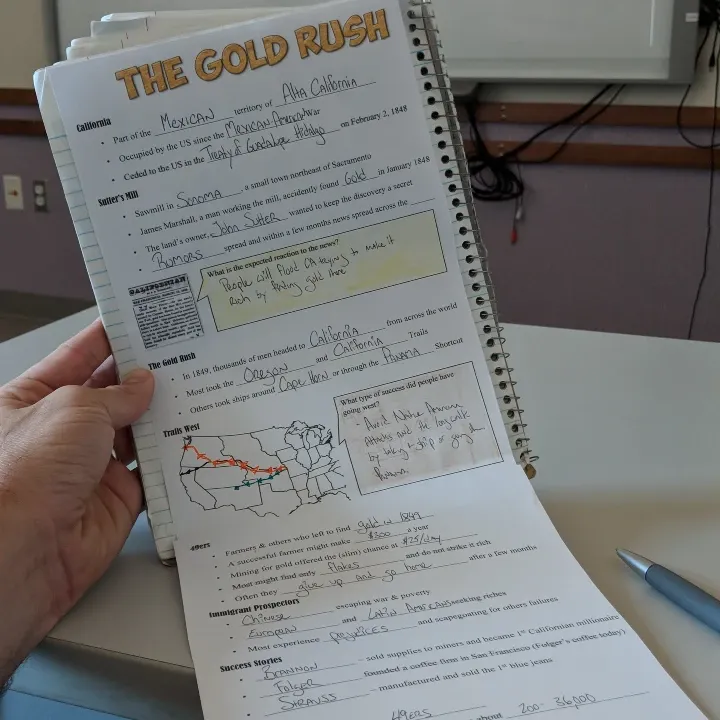 THE GOLD RUSH
California
• Part of the MEXICAN territory of Alta California
• Occupied by the US since the Mexican America War
• Ceded to the US in the Treaty of Guadalupe Hidalgo on February 2, 1848
Sutter's Mill
• Sawmill in Sonoma, a small town northeast of Sacramento
• James Marshall, a man working the mill, accidently found Gold in January 1848
• The land's owner, John Sutter wanted to keep the discovery a secret
• Rumors spread and within a few months news spread across the
What is the expected reaction to the news?
People will flood CA trying to make it
rich by finding gold there
The Gold Rush
• In 1849, thousands of men headed to California from across the world
• Most took the OREGON and California Trails
• Others took ships around Cape Horn or through the PANAMA Shortcut
Trails West
What type of success did people have
going west?
- Avoid Native American
Attacks and the long walk
by taking a ship or going
Panama
49ers
• Farmers & others who left to find gold in 1849
• A successful farmer might make $300 a year
• Mining for gold offered the (slim) chance at $25/day
• Most might find only flakes and do not strike it rich
• Often they give up and go home after a few months
Immigrant Prospectors
• Chinese escaping war & poverty
• EUROPEAN and LATIN AMERICAN seeking riches
• Most experience prejudices and scapegoating for others failures
Success Stories
• BRANNON – sold supplies to miners and became 1st Californian millionaire
• Folger founded a coffee firm in San Francisco (Folger's coffee today)
• STRAUSS – manufactured and sold the 1st blue jeans
49ERS about 200- 36,000